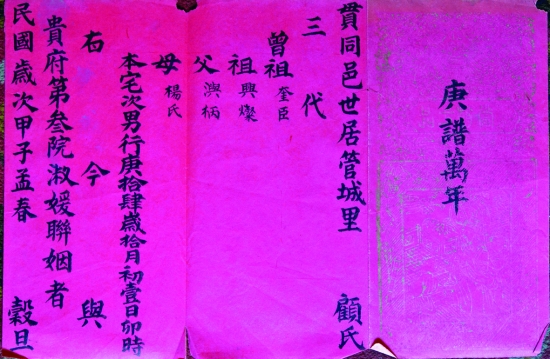 庚譜萬年
貫同邑世居管城里 顧氏
三代
曾祖奎臣
祖興燦
父澳柄
母楊氏
本宅次男行庚拾肆歲拾月初壹日卯時
右 今 與
貴府第叁院淑媛聯姻者
民國歲次甲子孟春 穀旦